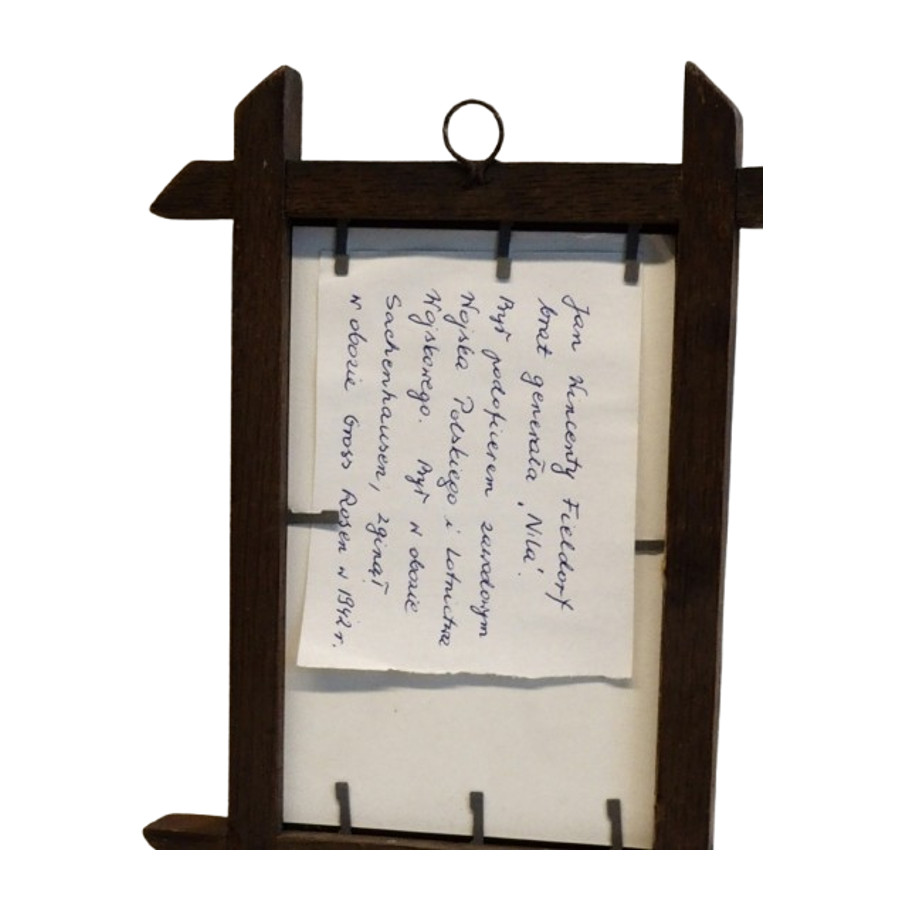 Jan Wincenty Fieldorf
brat generała ‚Nila'.
Był podoficerem zawodowym
Wojska Polskiego i Lotnictwa
Wojskowego. Był w obozie
Sachenhausen, zginął
w obozie Gross Rosen w 1942 r.